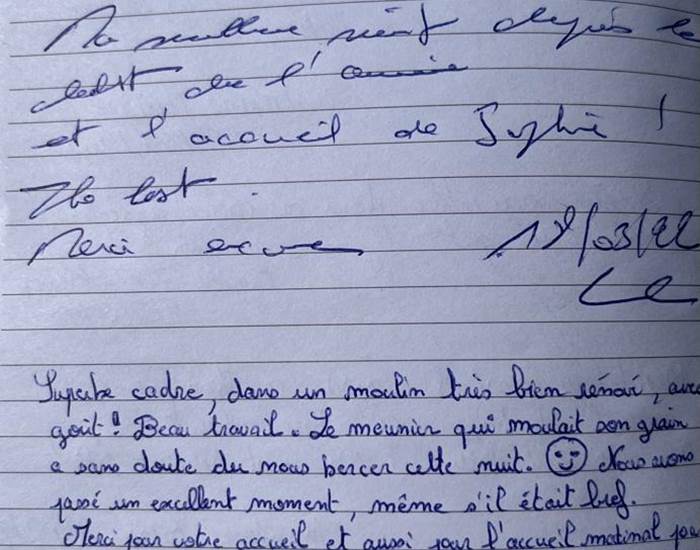 Ma meilleure nuit depuis le
début de l'année
et l'accueil de Sophie !
The best.
Merci encore 18/03/22
Superbe cadre, dans un moulin très bien rénové, avec
goût ! Beau travail. Le meunier qui moulait son grain
a sans doute du nous bercer cette nuit. Nous avons
passé un excellent moment, même s'il était bref.
Merci pour votre accueil et aussi pour l'accueil matinal